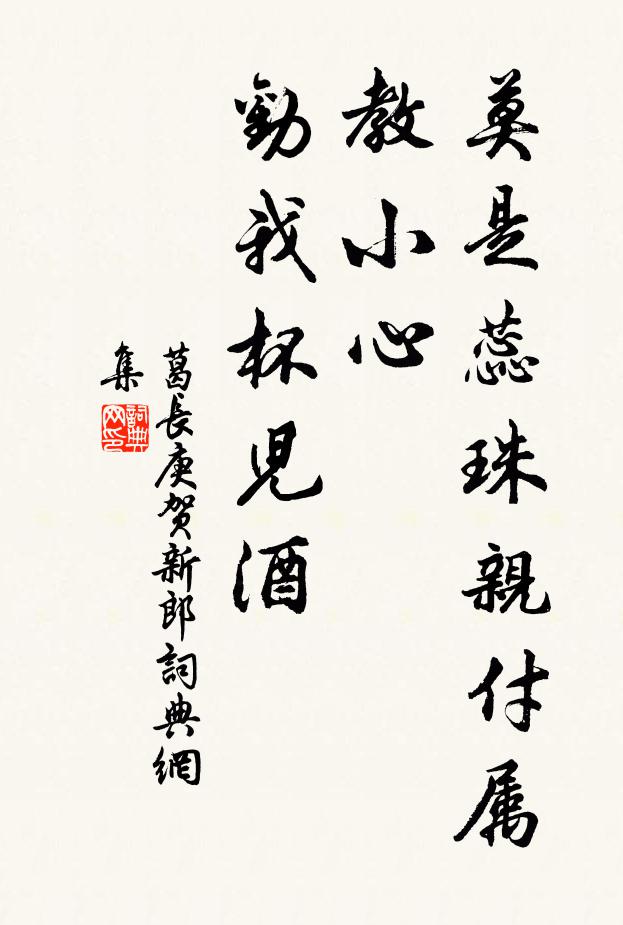 莫是蕊珠親付属
教小心
勸我杯児酒
葛長庚賀新郎詞典網
集
詞典网印